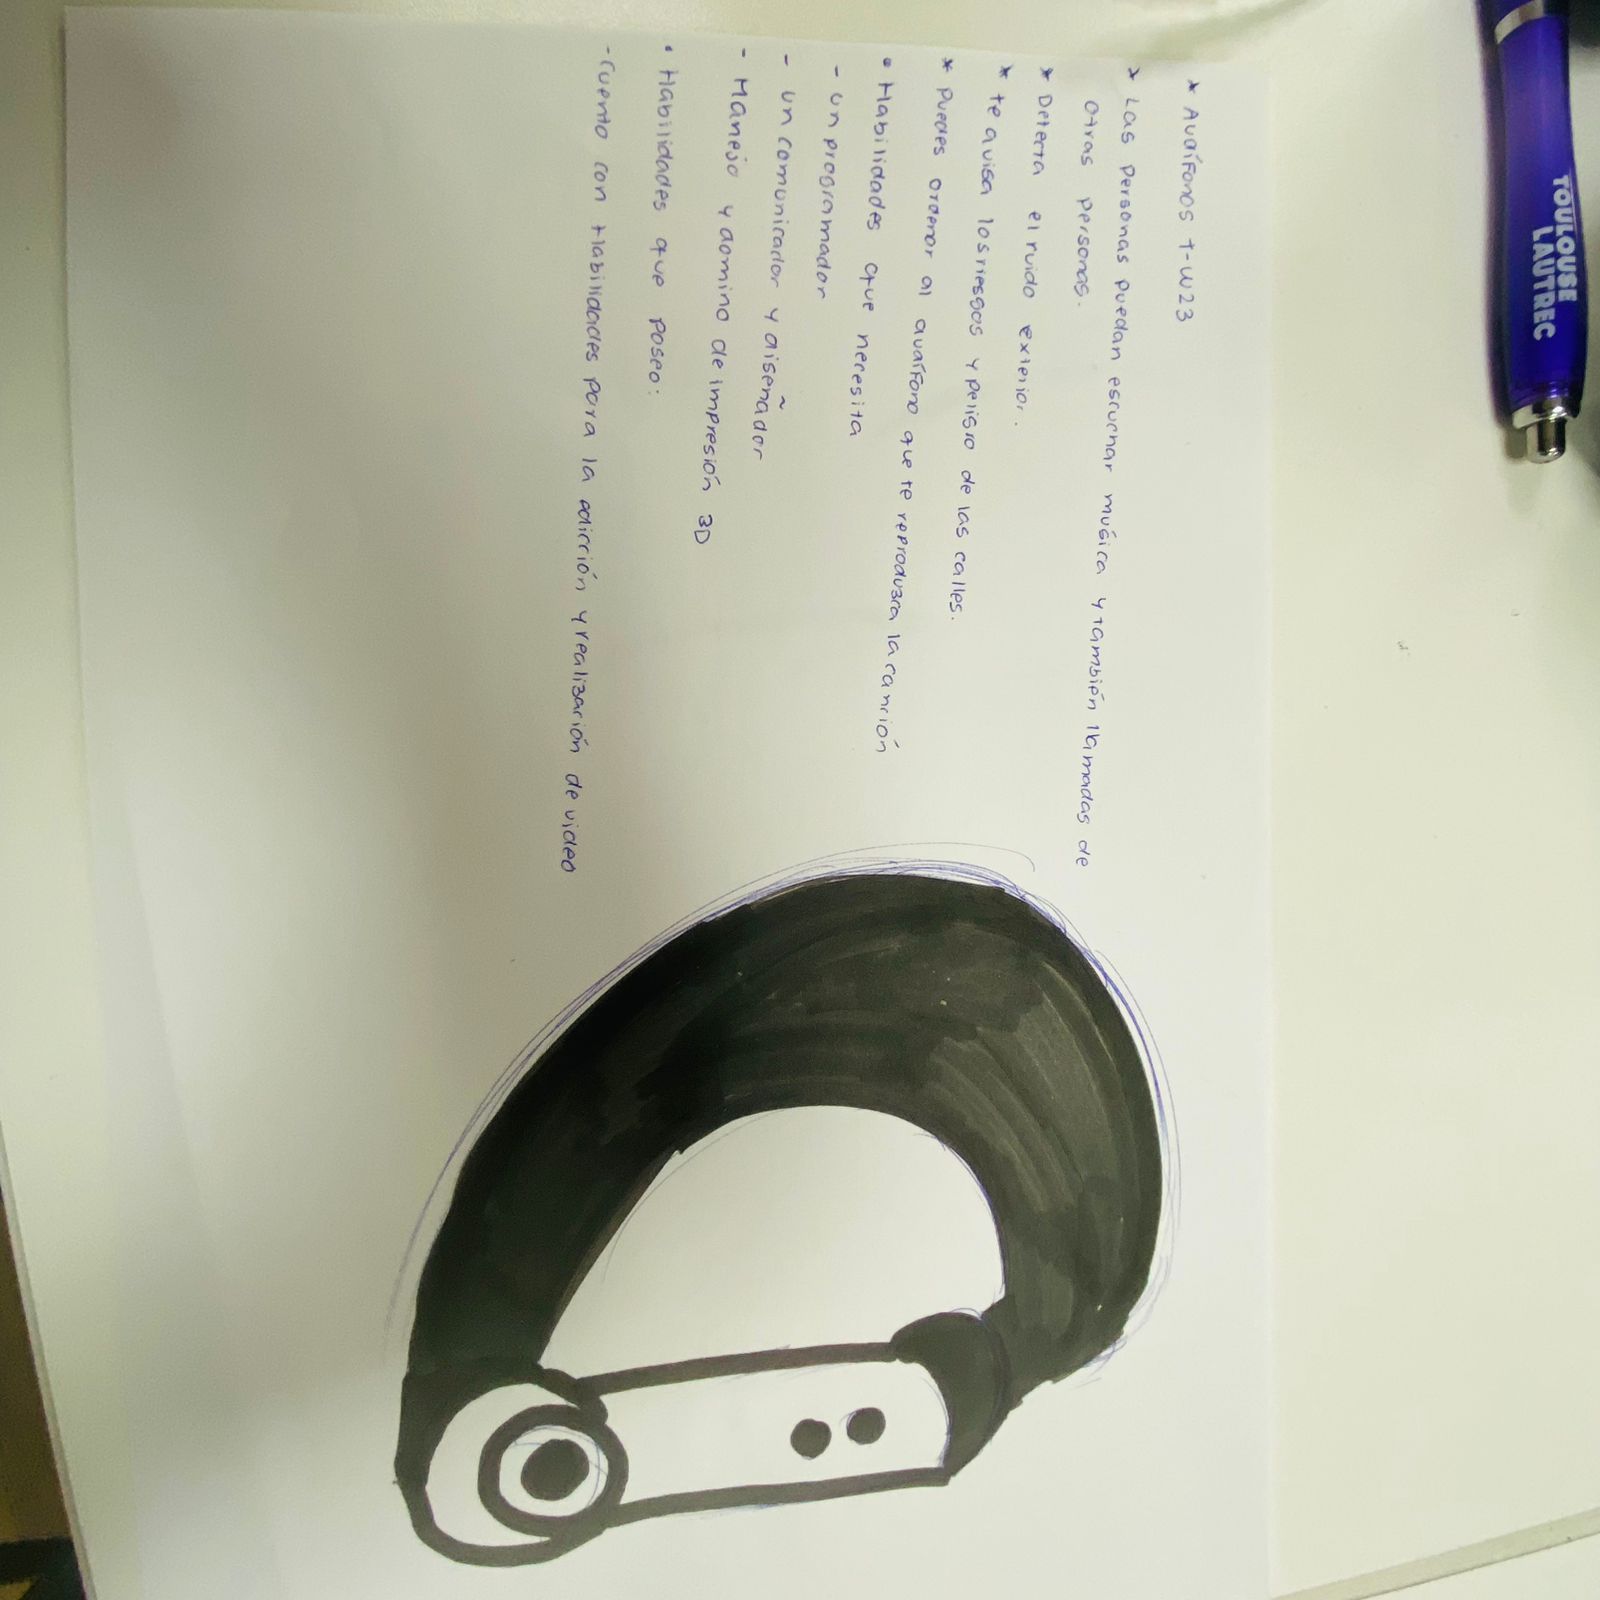 * Audífonos T-W23
* Las personas puedan escuchar música y también llamadas de
otras personas.
* Detecta el ruido exterior.
* te avisa los riesgos y peligro de las calles.
* Puedes ordenar al audífono que te reproduzca la canción
• Habilidades que necesita
- un programador
- un comunicador y diseñador
- Manejo y domino de impresión 3D
• Habilidades que poseo:
- cuento con Habilidades para la edicción y realización de video
TOULOUSE
LAUTREC